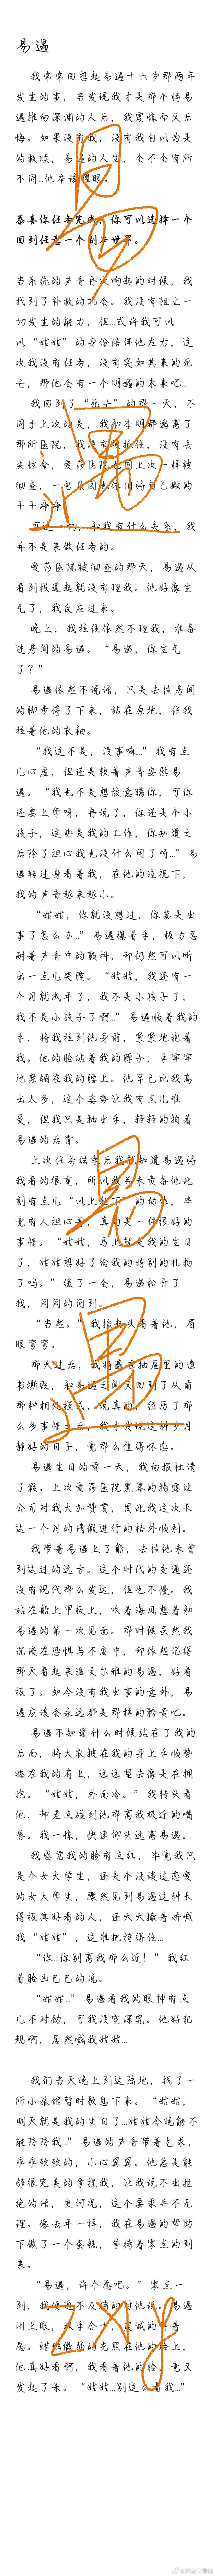 易遇
我常常回想起易遇十六岁那两年
发生的事，当发现我才是那个将易
遇推向深渊的人后，我震惊而又后
悔。如果没有我，没有我自以为是
的救赎，易遇的人生，会不会有所
不同…他本该耀眼。
恭喜你任务完成，你可以选择一个
回到任意一个副本世界。
当系统的声音再次响起的时候，我
找到了补救的机会。我没有阻止一
切发生的能力，但…或许我可以
以“姑姑”的身份陪伴他左右，这
次我没有任务，没有突如其来的死
亡，那他会有一个明媚的未来吧…
我回到了“死亡”的那一天，不
同于上次的是，我和李明都逃离了
那所医院，我没有被抓住，没有丢
失性命，爱莎医院也同上次一样被
细查，一电集团也依旧将自己撇的
干干净净。
可这一切，和我有什么关系，我
并不是来做任务的。
爱莎医院被细查的那天，易遇从
看到报道起就没有理我。他好像生
气了，我反应过来。
晚上，我拉住依然不理我，准备
进房间的易遇。“易遇，你生气
了？”
易遇依然不说话，只是去往房间
的脚步停了下来，站在原地，任我
拉着他的衣袖。
“我这不是，没事嘛…”我有点
儿心虚，但还是软着声音安慰易
遇。“我也不是想故意瞒你，可你
还要上学呀，再说了，你还是个小
孩子，这些是我的工作，你知道之
后除了担心我也没什么用了呀…”易
遇转过身看着我，在他的注视下，
我的声音越来越小。
“姑姑，你就没想过，你要是出
事了怎么办…”易遇攥着手，极力忍
耐着声音中的颤抖，却仍然可以听
出一点儿哭腔。“姑姑，我还有一
个月就成年了，我不是小孩子了，
我不是小孩子了啊…”易遇顺着我的
手，将我拉到他身前，紧紧地抱着
我。他的脸贴着我的脖子，手牢牢
地禁锢在我的腰上。他早已比我高
出太多，这个姿势让我有点儿难
受，但我只是抽出手，轻轻的拍着
易遇的后背。
上次任务结束后我就知道易遇将
我看的很重，所以我并未责备他此
刻有点儿“以上犯下”的动作，毕
竟有人担心着，真的是一件很好的
事情。“姑姑，马上就是我的生日
了，姑姑想好了给我的特别的礼物
了吗。”缓了一会，易遇松开了
我，闷闷的问到。
“当然。”我抬起头看着他，眉
眼弯弯。
那天过后，我将藏在抽屉里的遗
书撕毁，和易遇之间又回到了从前
那种相处模式，说真的，经历了那
么多事情之后，我才发现这种岁月
静好的日子，竟那么值得怀恋。
易遇生日的前一天，我向报社请
了假。上次爱莎医院黑幕的揭露让
公司对我大加赞赏，因此我这次长
达一个月的请假进行的格外顺利。
我带着易遇上了船，去往他未曾
到达过的远方。这个时代的交通还
没有现代那么发达，但也不慢。我
站在船上甲板上，吹着海风想着和
易遇的第一次见面。那时候虽然我
沉浸在恐惧与不安中，却依然记得
那天看起来温文尔雅的易遇，好看
极了。如今没有我出事的意外，易
遇应该会永远都是那样的矜贵吧。
易遇不知道什么时候站在了我的
后面，将大衣披在我的身上手顺势
搭在我的肩上，远远望去像是在拥
抱。“姑姑，外面冷。”我转头看
他，却差点碰到他那离我极近的嘴
唇。我一怵，快速仰头远离易遇。
我感觉我的脸有点红，毕竟我只
是个女大学生，还是个没谈过恋爱
的女大学生，骤然见到易遇这种长
得极其好看的人，还天天撒着娇喊
我“姑姑”，这谁把持得住…
“你…你别离我那么近！”我红
着脸凶巴巴的说。
“姑姑…”易遇看我的眼神有点
儿不对劲，可我没空深究。他好犯
规啊，居然喊我姑姑…
我们当天晚上到达陆地，找了一
所小旅馆暂时歇息下来。“姑姑，
明天就是我的生日了…姑姑今晚能不
能陪陪我…”易遇的声音带着乞求，
乖乖软软的，小心翼翼。他总是能
够很完美的拿捏我，让我说不出拒
绝的话，更何况，这个要求并不无
理。像去年一样，我在易遇的帮助
下做了一个蛋糕，等待着零点的到
来。
“易遇，许个愿吧。”零点一
到，我便迫不及待的对他说。易遇
闭上眼，双手合十，虔诚的许着
愿。蜡烛微弱的光照在他的脸上，
他真好看啊，我看着他的脸，竟又
发起了呆。“姑姑…别这么看我…”
易遇
易遇